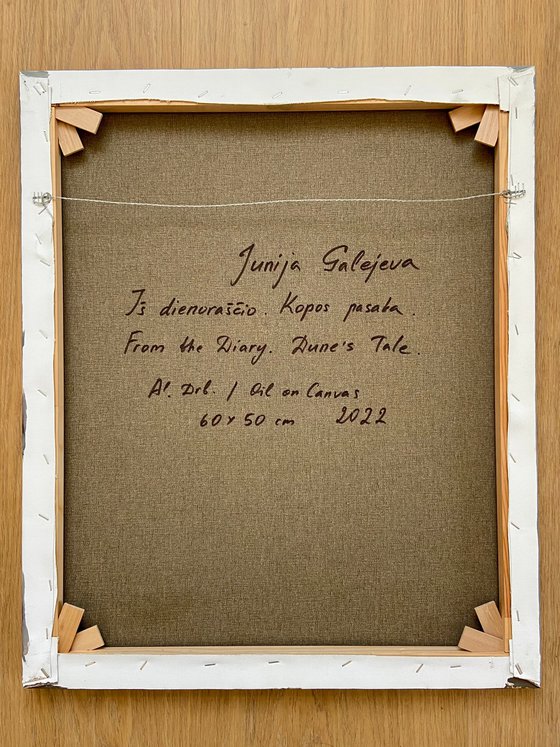 Junija Galejeva
Iš dienoraščio. Kopos pasaka.
From the Diary. Dune's Tale.
Al. Drb. / Oil on Canvas
60 x 50 cm 2022